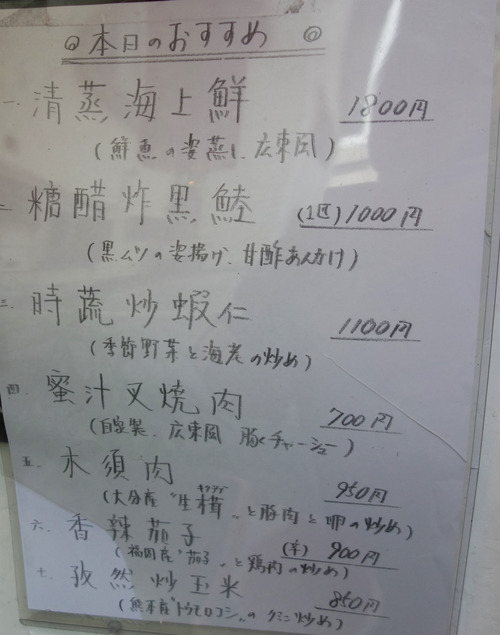 ◎ 本日のおすすめ ◎
一. 清蒸海上鮮 1800円
(鮮魚の姿蒸し. 広東風)
二. 糖醋炸黒鯥 (1匹) 1000円
(黒ムツの姿揚げ. 甘酢あんかけ)
三. 時蔬炒蝦仁 1100円
(季節野菜と海老の炒め)
四. 蜜汁叉焼肉 700円
(自家製. 広東風 豚チャーシュー)
五. 木須肉 950円
(大分産“生キクラゲ”と豚肉と卵の炒め)
六. 香辣茄子 (辛) 900円
(福岡産“茄子”と鶏肉の炒め)
七. 孜然炒玉米 850円
(熊本産“トウモロコシ”のクミン炒め)